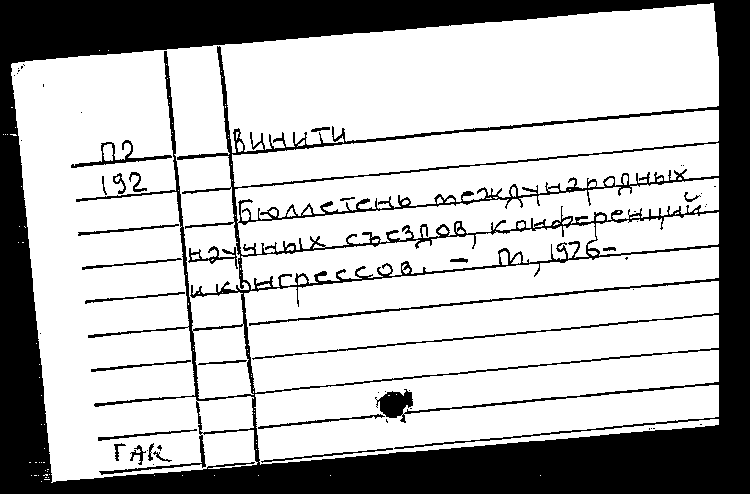 П2 ВИНИТИ
192
Бюллетень международных
научных съездов, конференций
и конгрессов. - М., 1976-.
ГАК